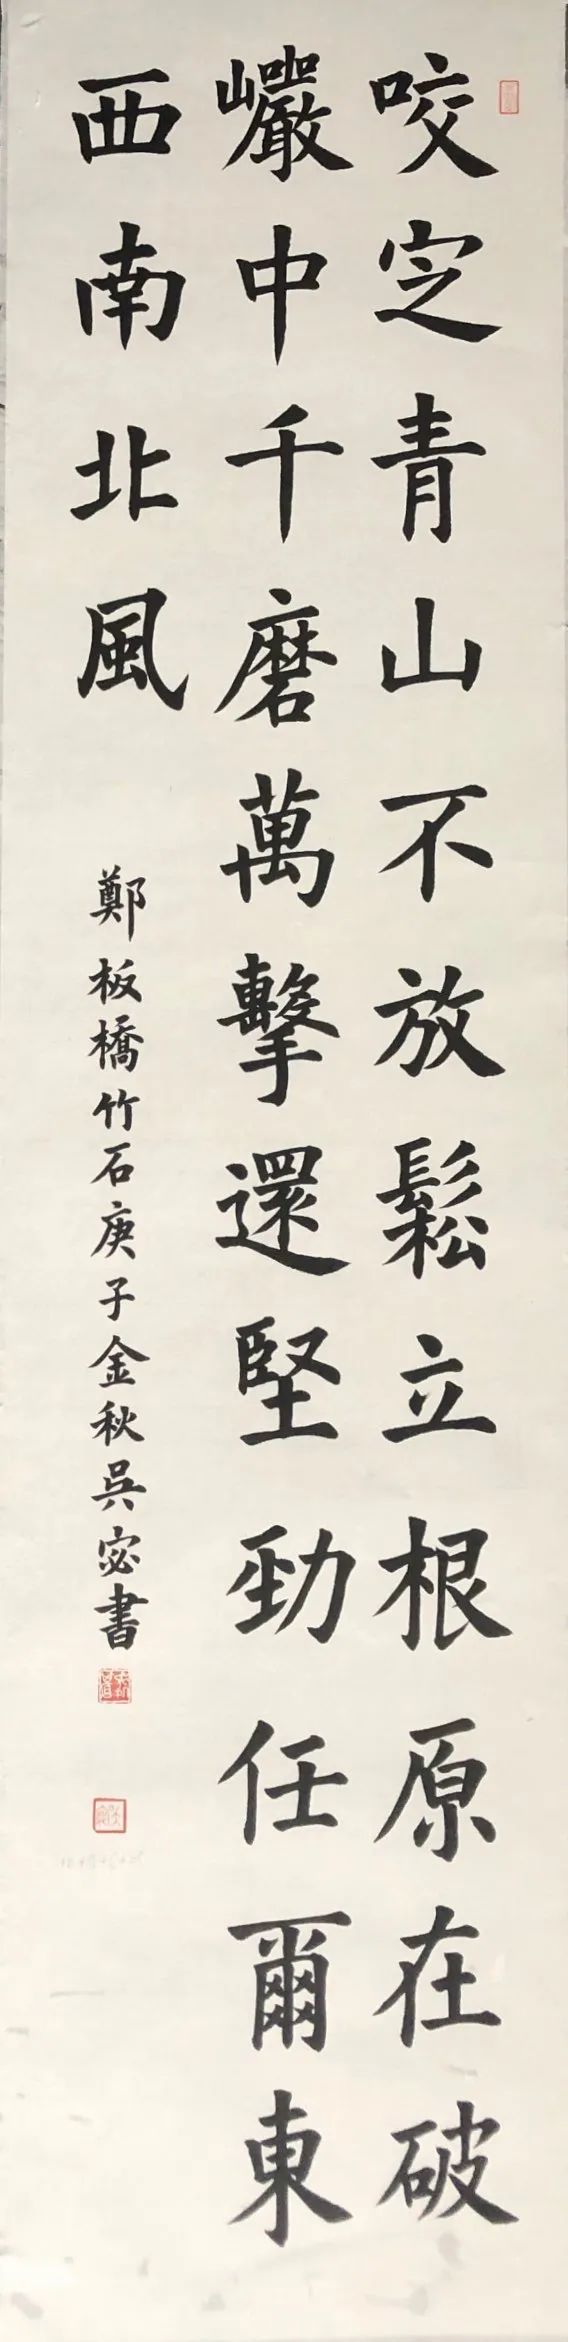 咬定青山不放鬆立根原在破
巖中千磨萬擊還堅勁任爾東
西南北風
鄭板橋竹石庚子金秋吳宓書